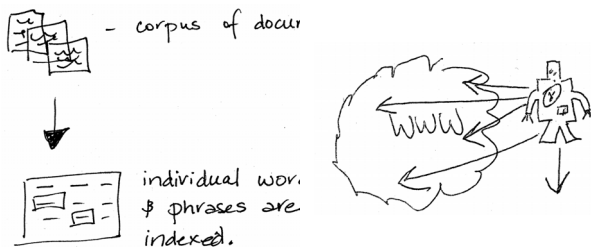 - corpus of docum
individual wor
& phrases are
indexed.
WWW